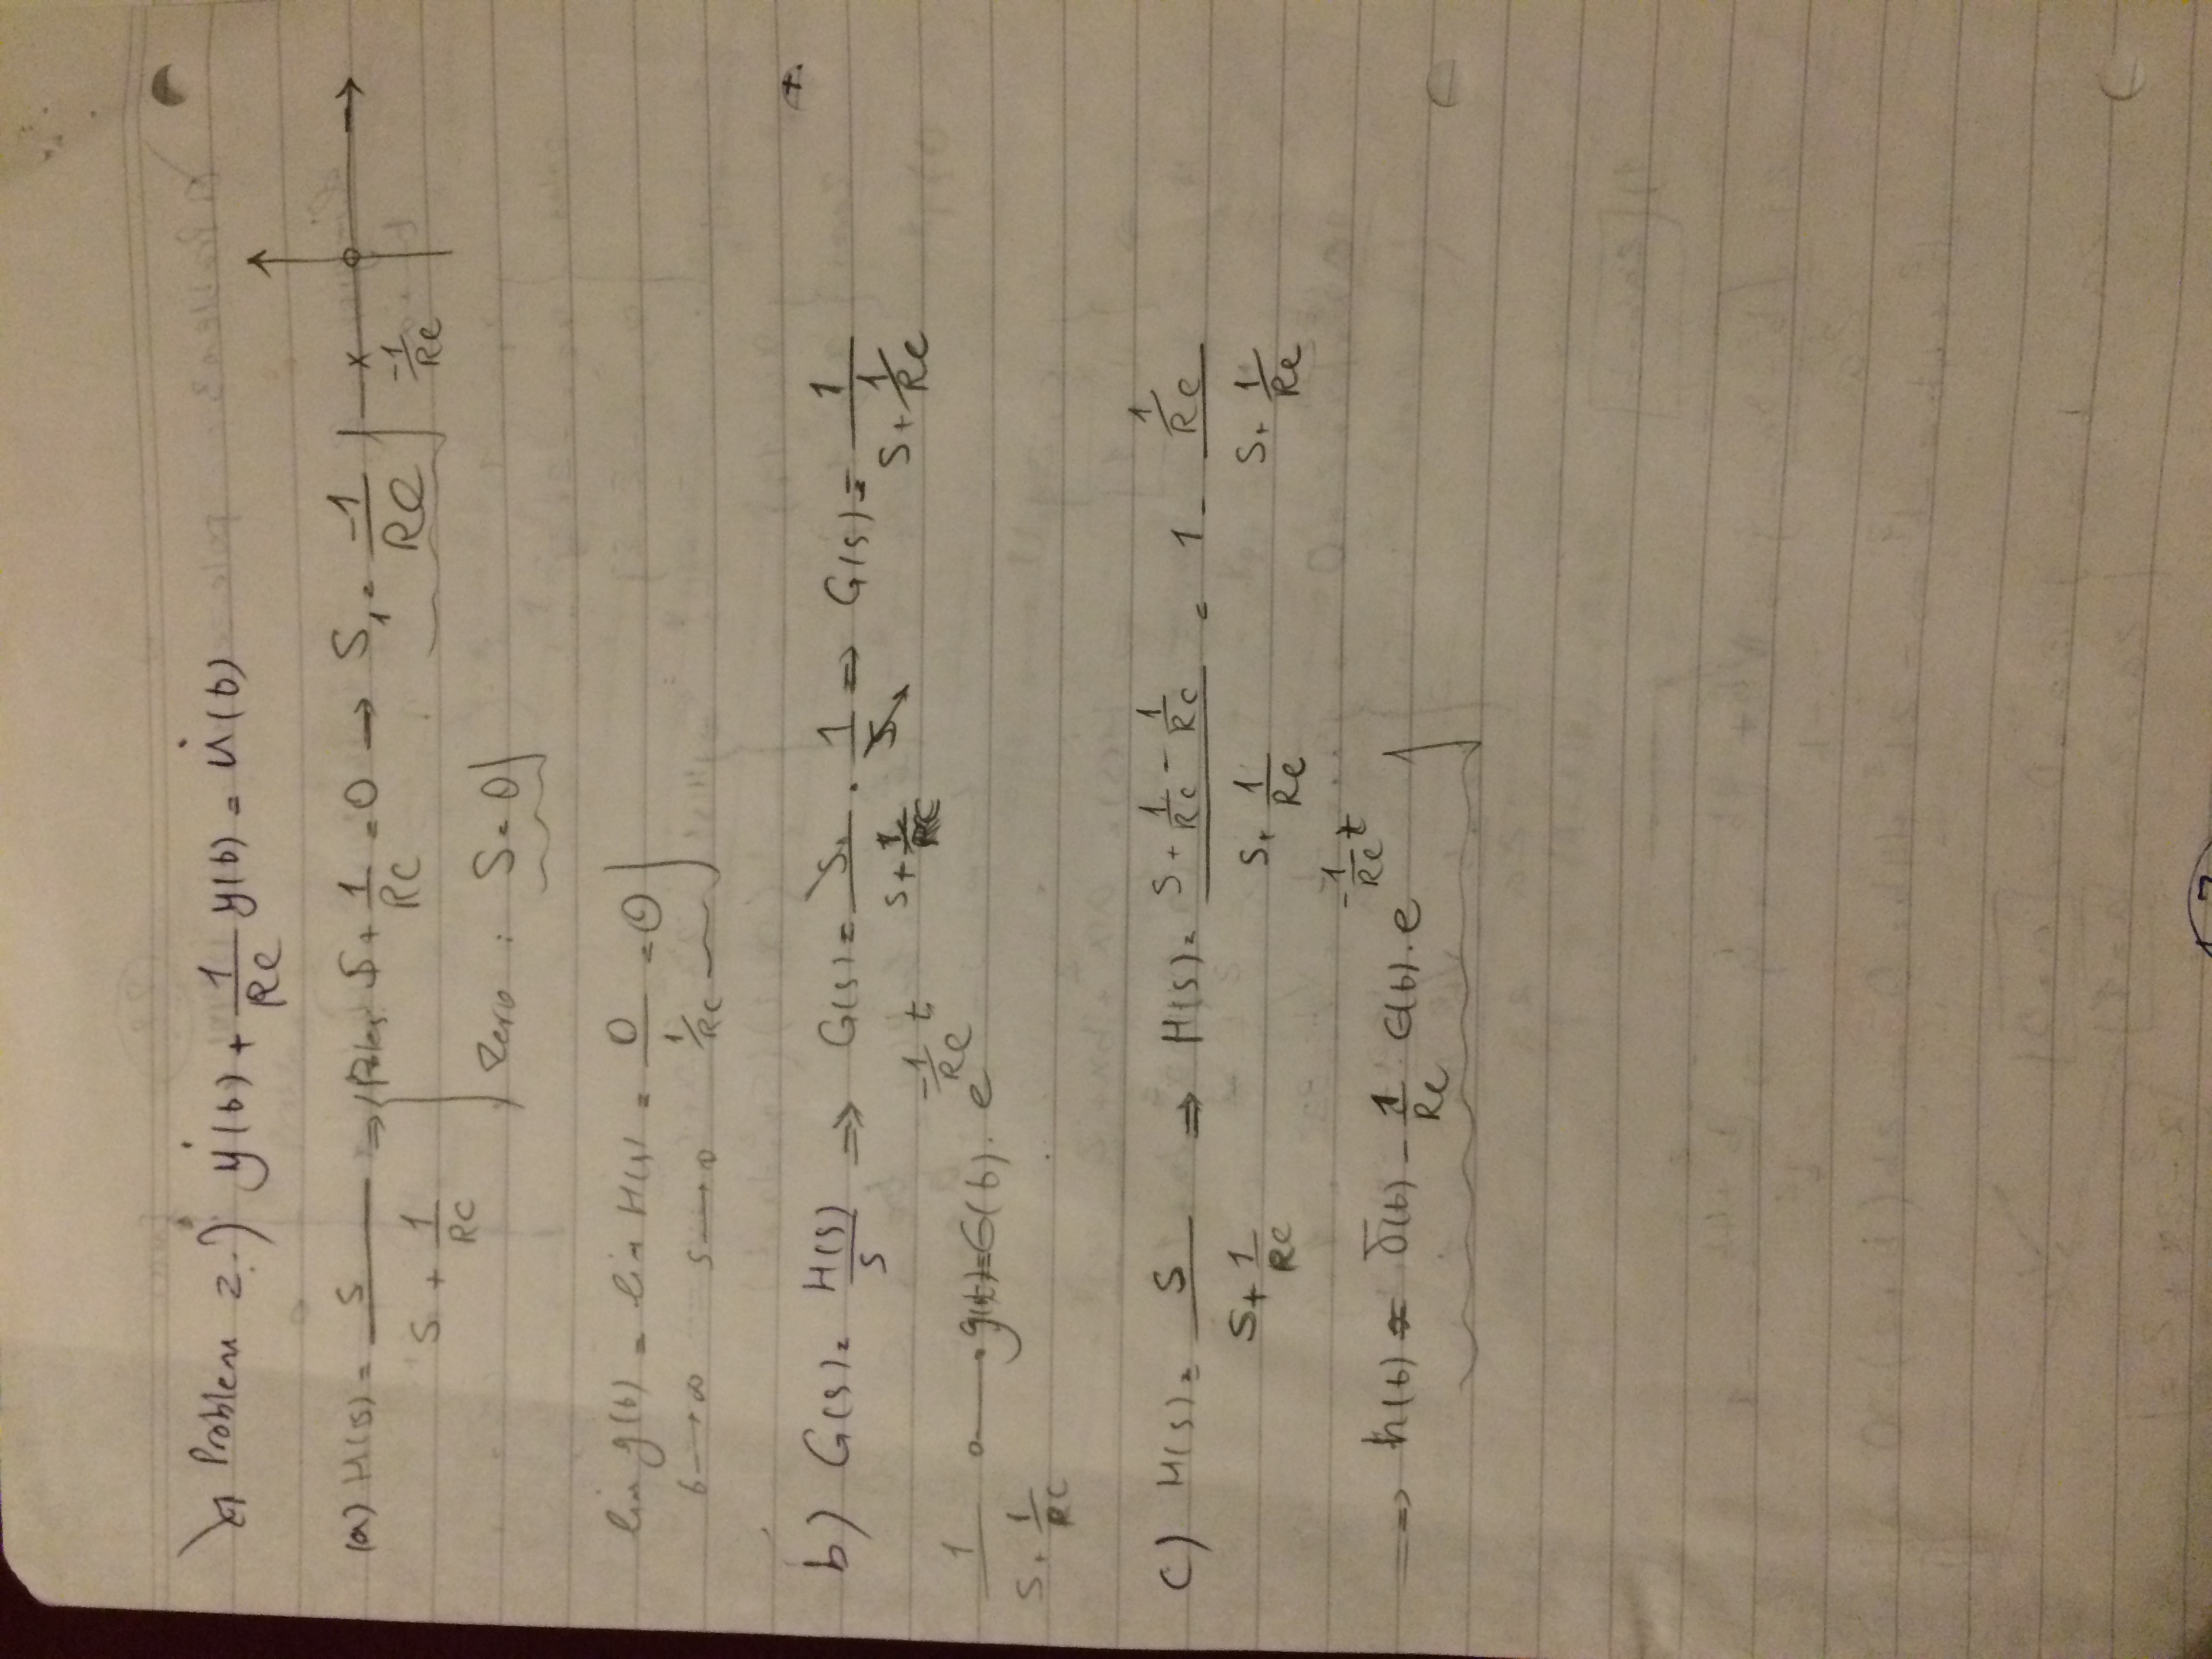 Problem 2.) ẏ(t) + 1/RC y(t) = u̇(t)
(a) H(s) = s / (s + 1/RC) ⇒ { Poles: S + 1/RC = 0 → S₁ = -1/RC
× -1/RC
Zero : S = 0
lim g(t) = lim H(s) = 0 / (1/RC) = 0
t → ∞ s → 0
b) G(s) = H(s)/s ⇒ G(s) = s / (s + 1/RC) · 1/s ⇒ G(s) = 1 / (s + 1/RC)
1 / (s + 1/RC) ○—• g(t) = ε(t) · e^(-1/RC t)
c) H(s) = s / (s + 1/RC) ⇒ H(s) = (s + 1/RC - 1/RC) / (s + 1/RC) = 1 - (1/RC) / (s + 1/RC)
⇒ h(t) = δ(t) - 1/RC ε(t) · e^(-1/RC t)